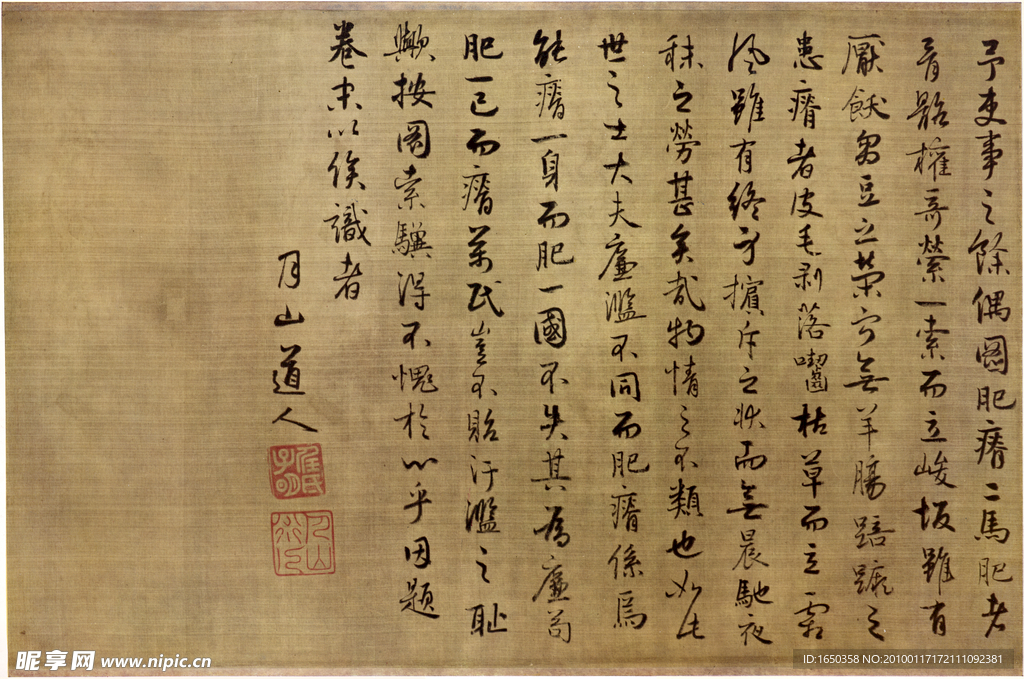 予吏事之餘偶圖肥瘠二馬肥者
骨骼權奇縈一索而立峻坂雖有
厭飫芻豆之榮寧無羊腸踣蹶之
患瘠者皮毛剥落囓枯草而立霜
風雖有終身擯斥之狀而無晨馳夜
秣之勞甚矣哉物情之不類也如此
世之士大夫廉濫不同而肥瘠係焉
能瘠一身而肥一國不失其為廉苟
肥一己而瘠萬民豈不貽汙濫之恥
歟按圖索驥得不愧於心乎因題
卷末以俟識者
月山道人
任氏子明
昵享网 www.nipic.cn
ID:1650358 NO:20100117172111092381